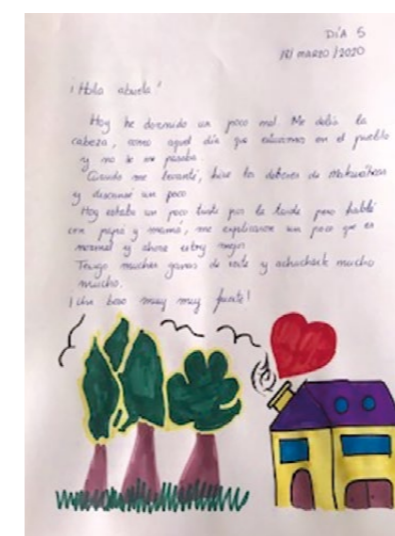 DÍA 5
18/ MARZO /2020
¡Hola abuela!
Hoy he dormido un poco mal. Me dolía la
cabeza, como aquel día que estuvimos en el pueblo
y no se me pasaba.
Cuando me levanté, hice los deberes de Matemáticas
y descansé un poco.
Hoy estaba un poco triste por la tarde pero hablé
con papá y mamá, me explicaron un poco que es
normal y ahora estoy mejor.
Tengo muchas ganas de verte y achucharte mucho
mucho.
¡Un beso muy muy fuerte!